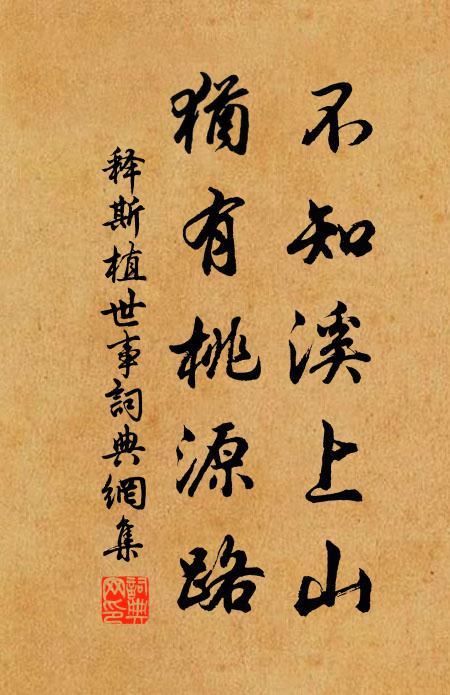 不知溪上山
猶有桃源路
释斯植世事詞典網集
詞典网印